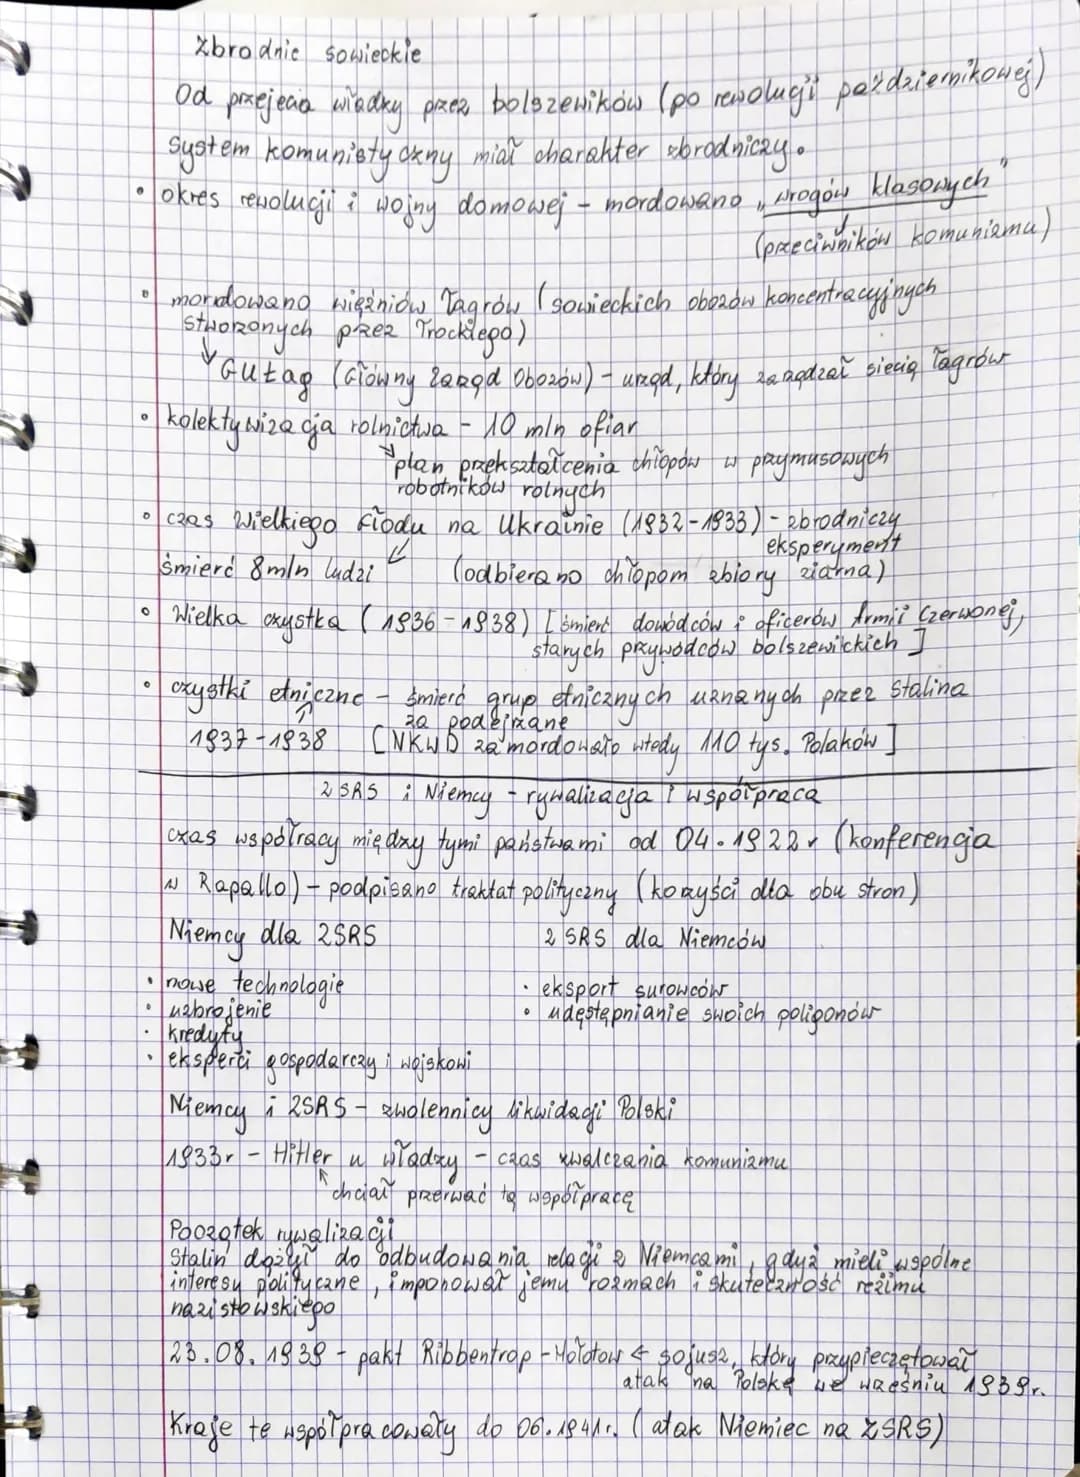 Zbrodnie sowieckie
Od przejęcia władzy przez bolszewików (po rewolucji październikowej)
system komunistyczny miał charakter zbrodniczy.
• okres rewolucji i wojny domowej - mordowano „wrogów klasowych"
(przeciwników komunizmu)
• mordowano więźniów łagrów (sowieckich obozów koncentracyjnych
stworzonych przez Trockiego)
↓ GUŁag (Główny Zarząd Obozów) - urząd, który zarządzał siecią łagrów
• kolektywizacja rolnictwa - 10 mln ofiar
↓ plan przekształcenia chłopów w przymusowych
robotników rolnych
• czas Wielkiego Głodu na Ukrainie (1932-1933) - zbrodniczy
eksperyment
śmierć 8mln ludzi ↙ (odbierano chłopom zbiory ziarna)
• Wielka czystka (1936-1938) [śmierć dowódców i oficerów Armii Czerwonej,
starych przywódców bolszewickich]
• czystki etniczne - śmierć grup etnicznych uznanych przez Stalina
za podejrzane
1937-1938 [NKWD zamordowało wtedy 110 tys. Polaków]
ZSRS i Niemcy - rywalizacja i współpraca
czas współracy między tymi państwami od 04.1922r (konferencja
w Rapallo) - podpisano traktat polityczny (korzyści dla obu stron)
Niemcy dla ZSRS ZSRS dla Niemców
• nowe technologie • eksport surowców
• uzbrojenie • udęstępnianie swoich poligonów
• kredyty
• eksperci gospodarczy i wojskowi
Niemcy i ZSRS - zwolennicy likwidacji Polski
1933r - Hitler u władzy - czas zwalczania komunizmu
↖ chciał przerwać tą współpracę
Początek rywalizacji
Stalin dążył do odbudowania relacji z Niemcami, gdyż mieli wspólne
interesy polityczne, imponował jemu rozmach i skuteczność reżimu
nazistowskiego
23.08.1939 - pakt Ribbentrop-Mołotow ← sojusz, który przypieczętował
atak na Polskę we wrześniu 1939r.
Kraje te współpracowały do 06.1941r. (atak Niemiec na ZSRS)